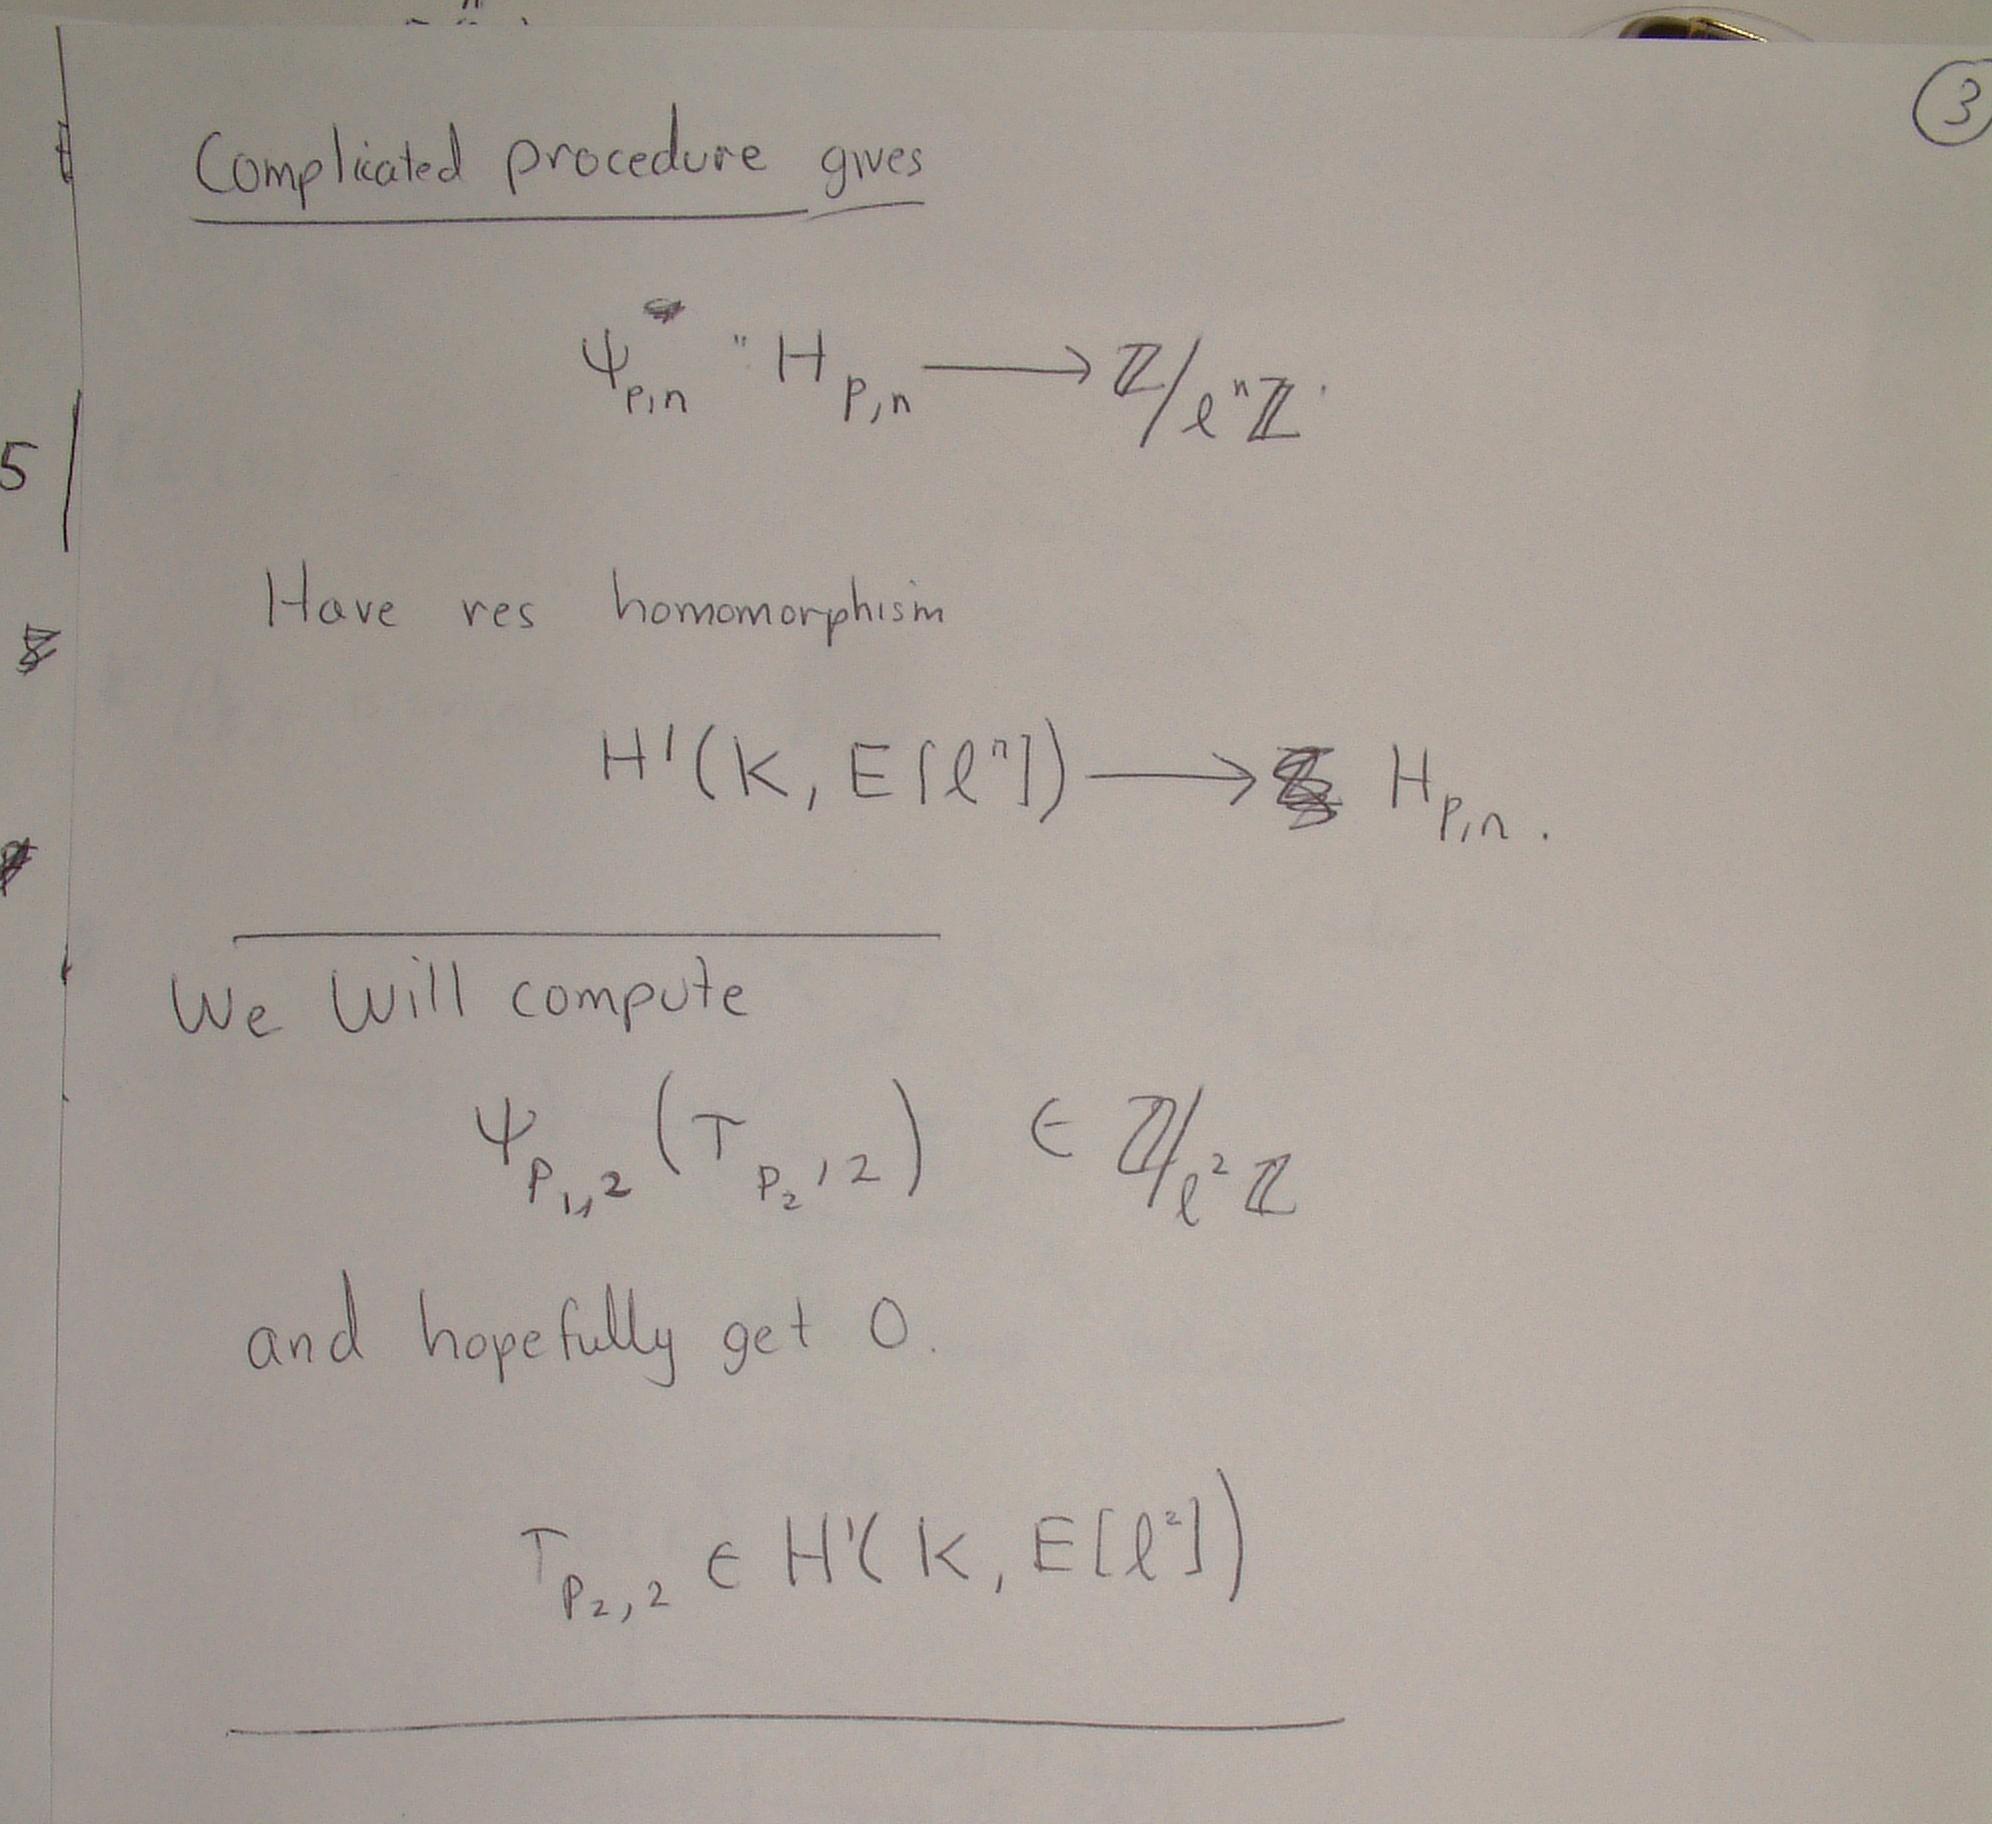 ③
Complicated procedure gives
ψ_{p,n} : H_{p,n} ⟶ ℤ/ℓⁿℤ.
Have res homomorphism
H¹(K, E[ℓⁿ]) ⟶ H_{p,n}.
We Will compute
ψ_{p₁,2} (τ_{p₂,2}) ∈ ℤ/ℓ²ℤ
and hopefully get 0.
τ_{p₂,2} ∈ H¹(K, E[ℓ²])
5